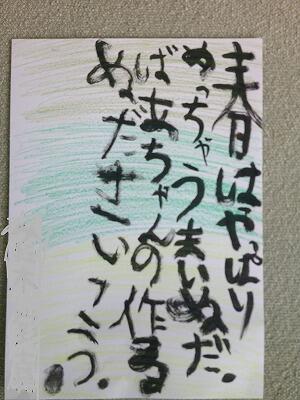 春はやっぱり
めっちゃうまいぬだ。
ばあちゃんの作る
ぬださいこう。